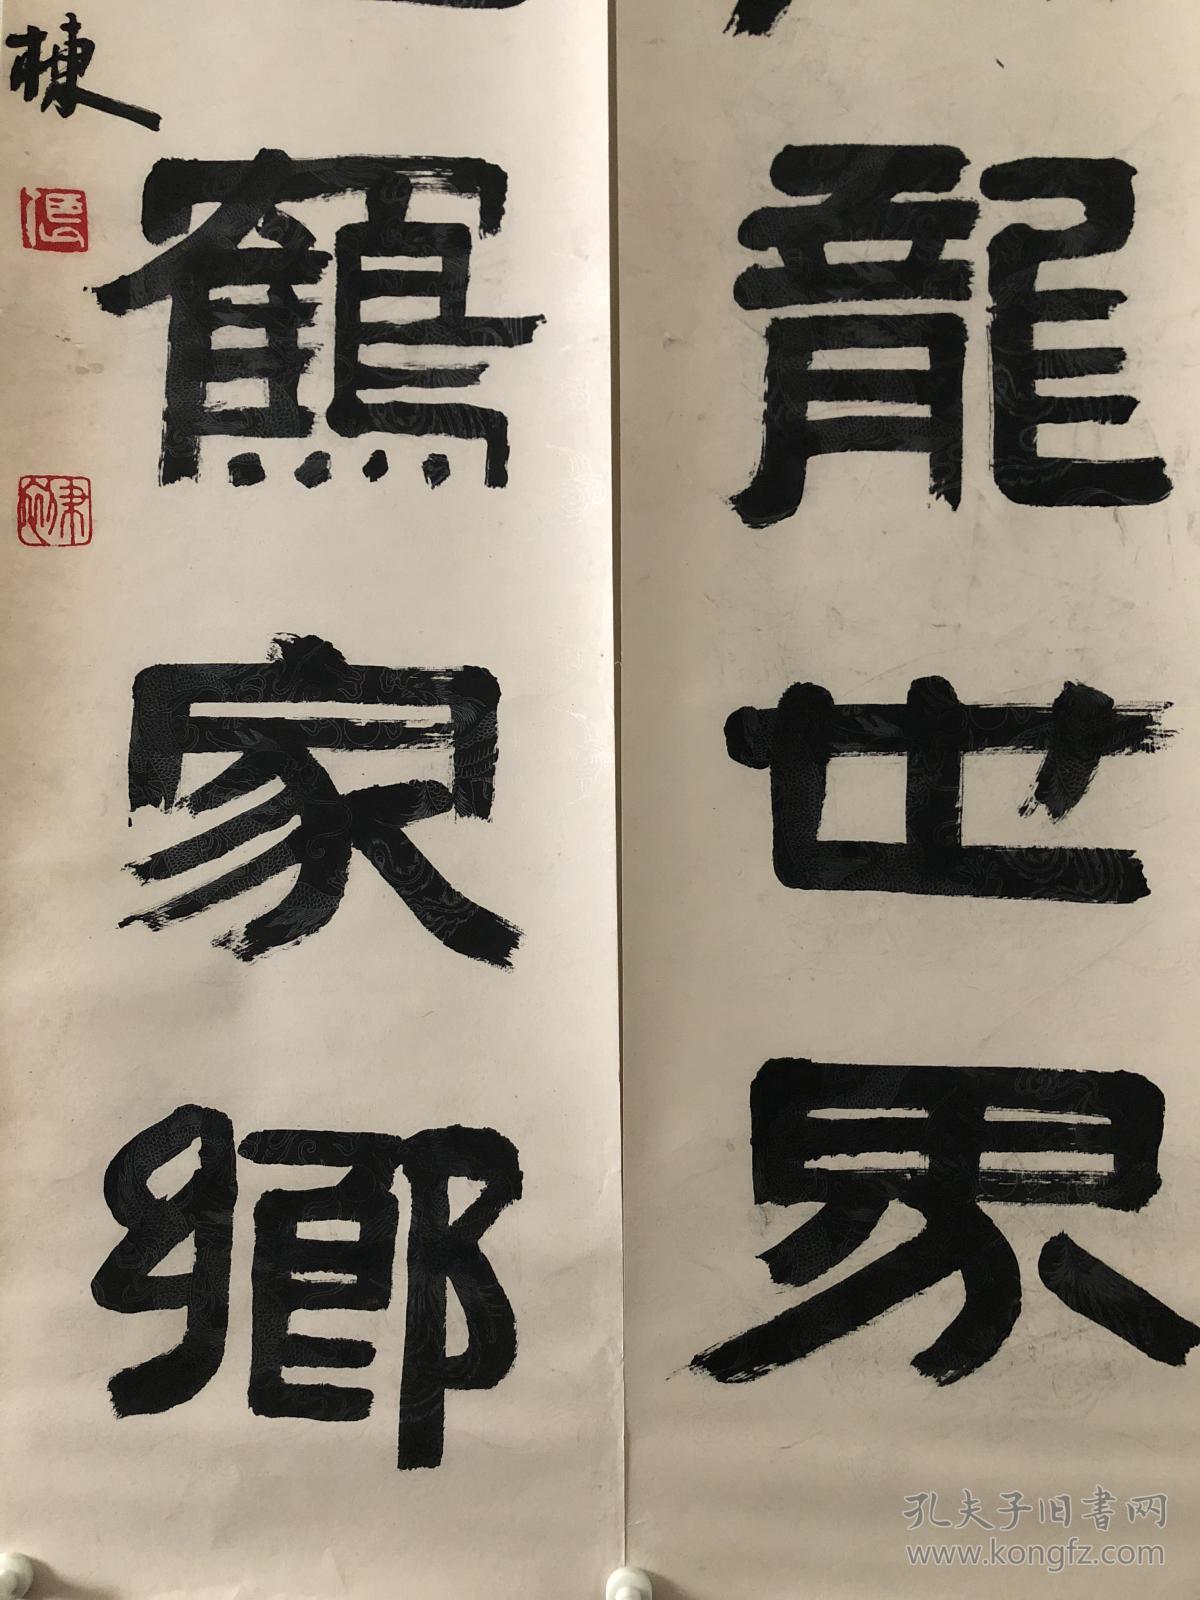 龍世界
鶴家鄉
棟
孔夫子旧书网
www.kongfz.com